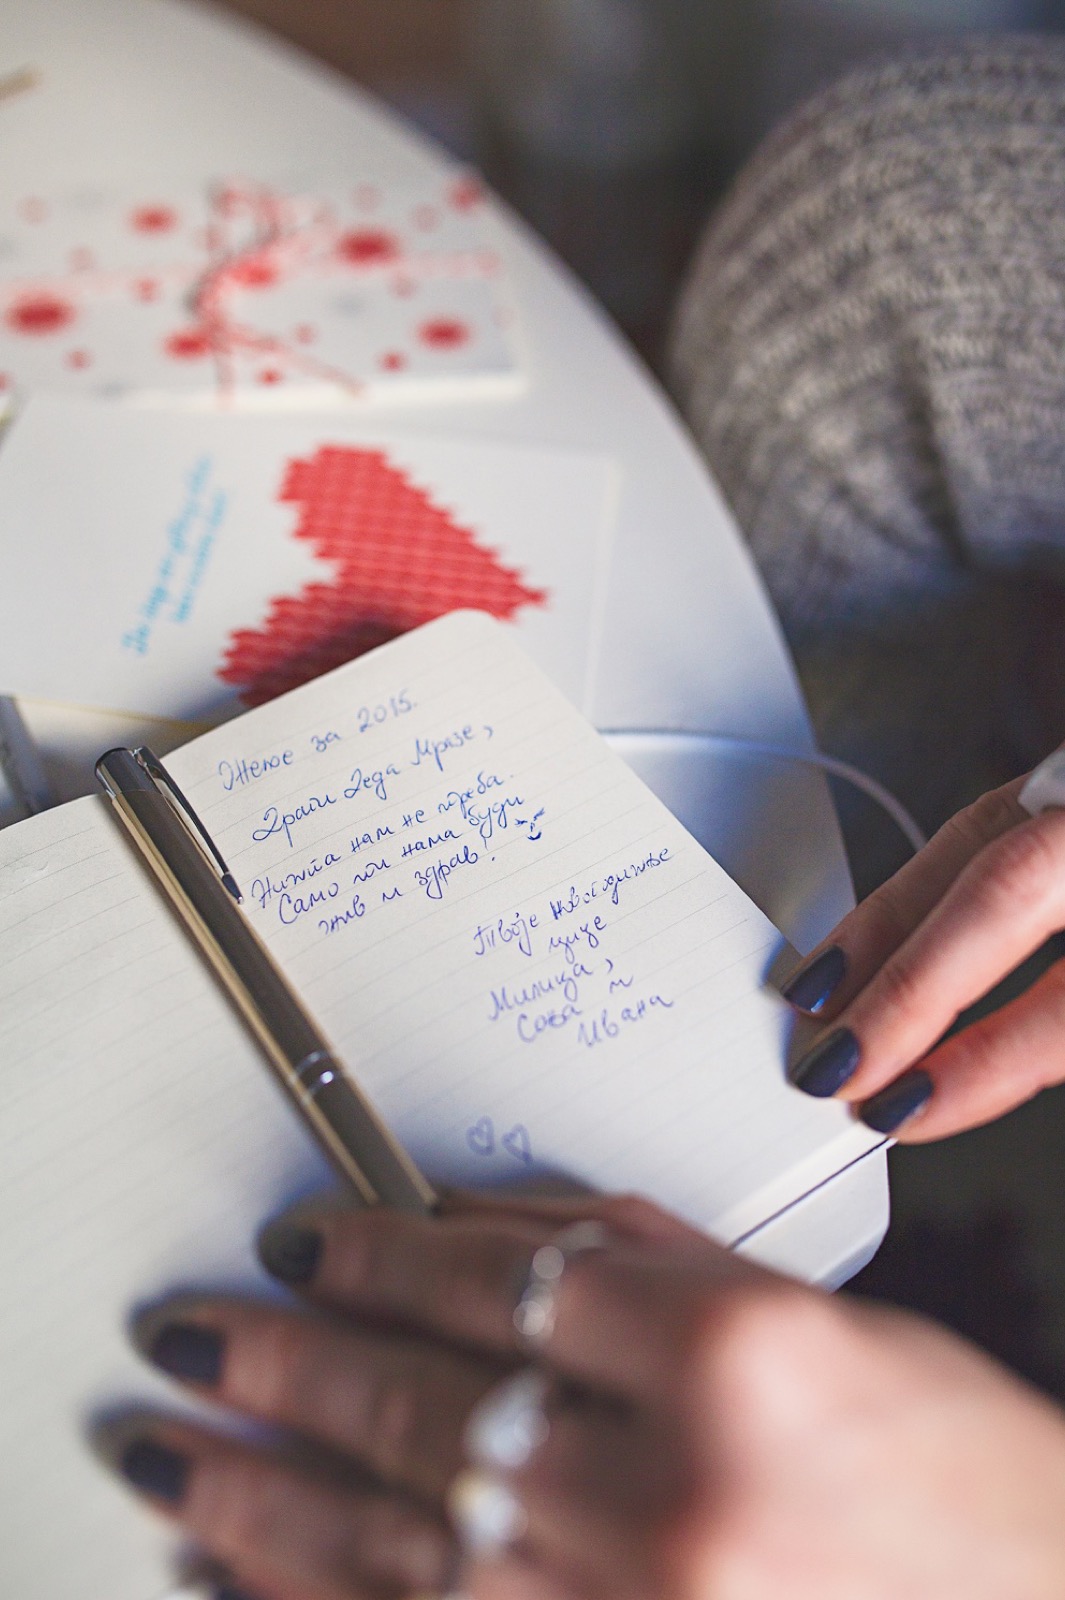 Жеље за 2015.
Драги Деда Мразе,
Ништа нам не треба.
Само ти нама буди
жив и здрав!
Твоје новогодишње
цице
Милица,
Сова и
Ивана